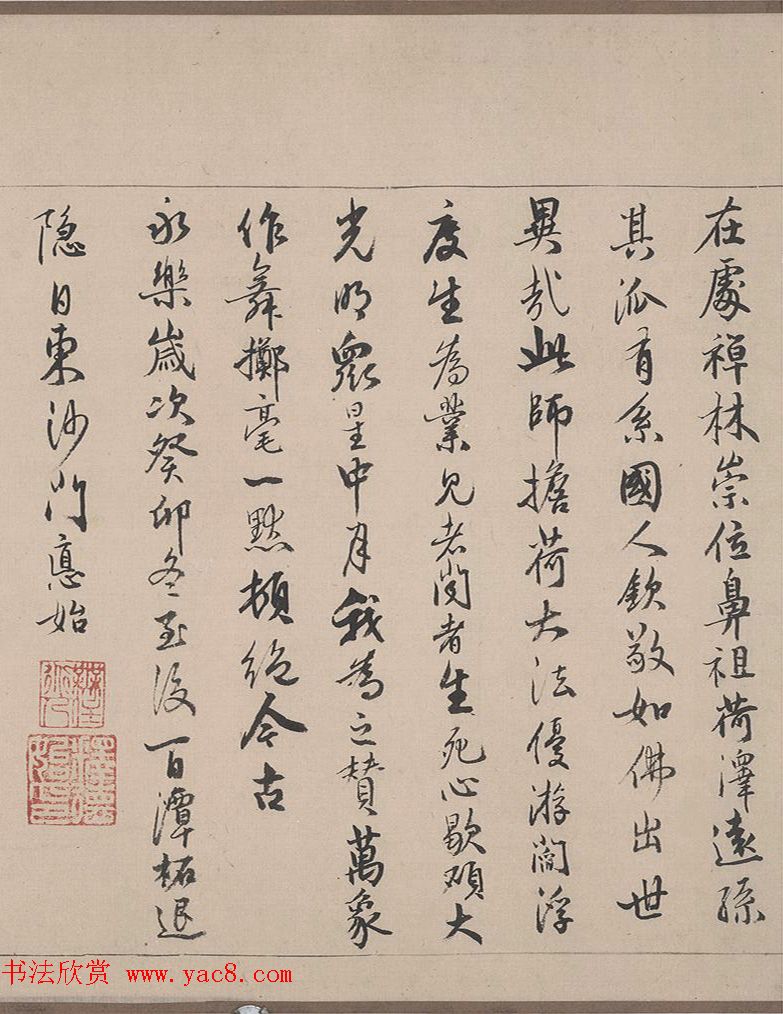 在處禪林崇位鼻祖荷澤遠孫
其派有系國人欽敬如佛出世
異哉此師擔荷大法優游閻浮
度生為業見者聞者生死心歇碩大
光明眾星中月我為之贊萬象
作舞擲毫一點頓絕今古
永樂歲次癸卯冬至後一日潭柘退
隱日東沙門德始
书法欣赏 www.yac8.com